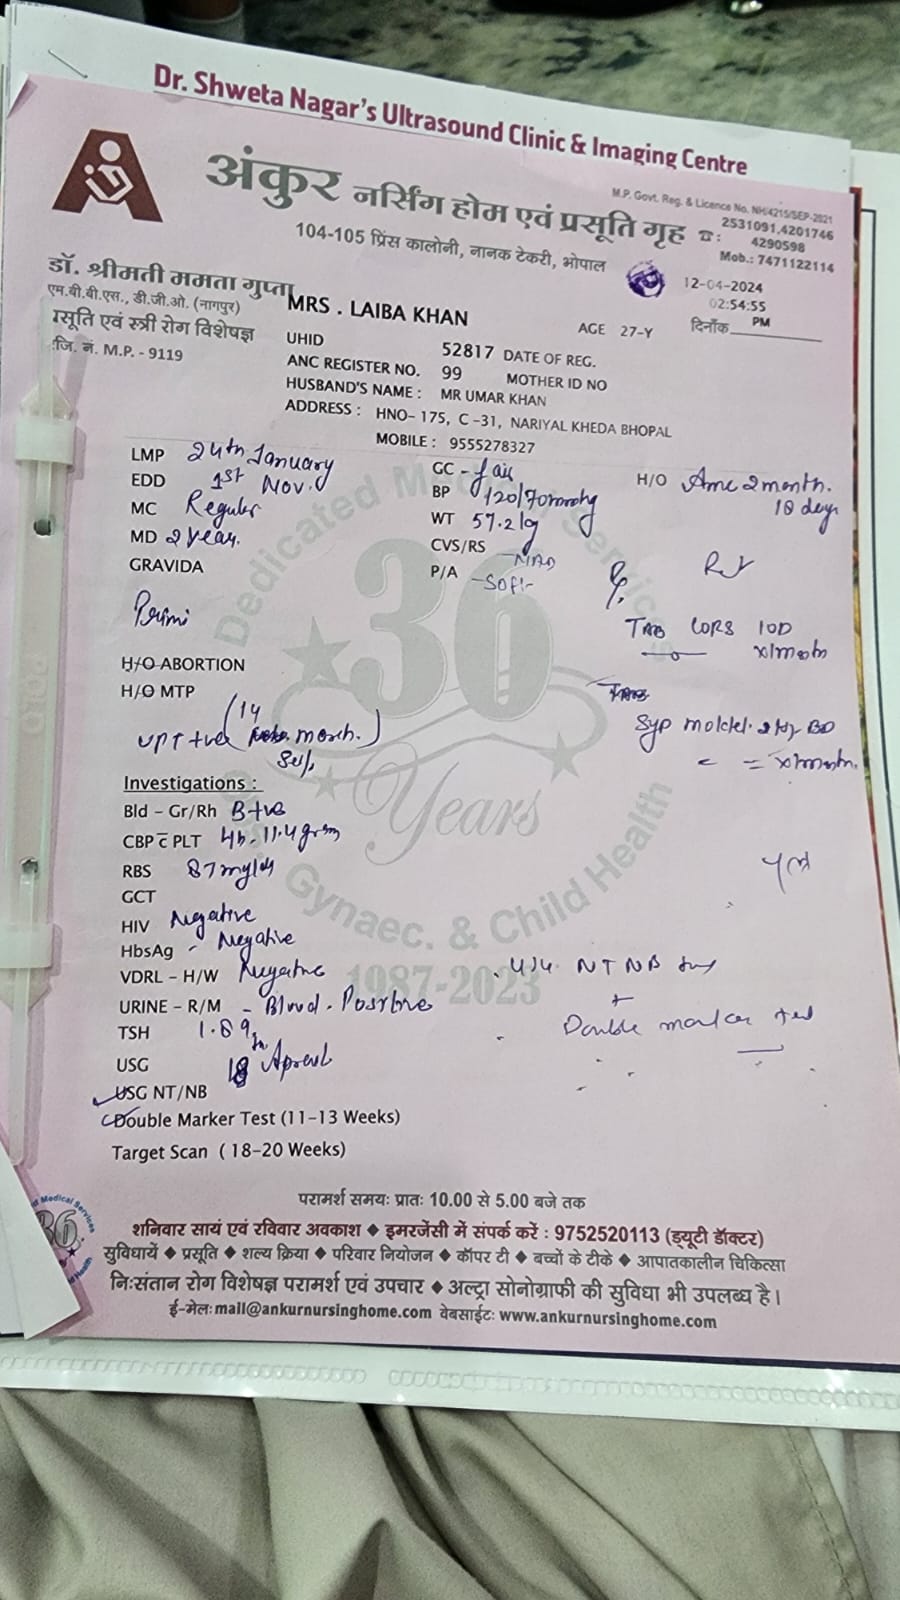 Dr. Shweta Nagar's Ultrasound Clinic & Imaging Centre
M.P. Govt. Reg. & Licence No. NH/4215/SEP-2021
अंकुर नर्सिंग होम एवं प्रसूति गृह
☎: 2531091,4201746
4290598
Mob.: 7471122114
104-105 प्रिंस कालोनी, नानक टेकरी, भोपाल
डॉ. श्रीमती ममता गुप्ता
एम.बी.बी.एस., डी.जी.ओ. (नागपुर)
रसूति एवं स्त्री रोग विशेषज्ञ
जि. नं. M.P. - 9119
12-04-2024
02:54:55 PM
दिनाँक
MRS . LAIBA KHAN
AGE 27-Y
UHID 52817 DATE OF REG.
ANC REGISTER NO. 99 MOTHER ID NO
HUSBAND'S NAME : MR UMAR KHAN
ADDRESS : HNO- 175, C -31, NARIYAL KHEDA BHOPAL
MOBILE : 9555278327
LMP 24th January
EDD 1st Nov.
MC Regular
MD 2 year.
GRAVIDA
Primi
GC - fair
BP 120/70mmhg
WT 57.2 kg
CVS/RS - NAD
P/A - Soft -
H/O Amc 2 month.
18 days
TAB 10D
x1month
Syp BD
x1month.
H/O ABORTION
H/O MTP
UPT +ve (14 march.)
Self
Investigations :
Bld - Gr/Rh B+ve
CBP c̄ PLT Hb- 11.4 gram
RBS 87 mg/dl
GCT
HIV Negative
HbsAg - Negative
VDRL - H/W Negative
URINE - R/M - Blood - Positive
TSH 1.89
USG 18 April
USG NT/NB
Double Marker Test (11-13 Weeks)
Target Scan ( 18-20 Weeks)
NT NB
+
Double marker test
Dedicated Medical Services
36
Years
Gynaec. & Child Health
1987-2023
परामर्श समयः प्रातः 10.00 से 5.00 बजे तक
शनिवार सायं एवं रविवार अवकाश ◆ इमरजेंसी में संपर्क करें : 9752520113 (ड्यूटी डॉक्टर)
सुविधायें ◆ प्रसूति ◆ शल्य क्रिया ◆ परिवार नियोजन ◆ कॉपर टी ◆ बच्चों के टीके ◆ आपातकालीन चिकित्सा
निःसंतान रोग विशेषज्ञ परामर्श एवं उपचार ◆ अल्ट्रा सोनोग्राफी की सुविधा भी उपलब्ध है।
ई-मेलः mail@ankurnursinghome.com वेबसाईटः www.ankurnursinghome.com